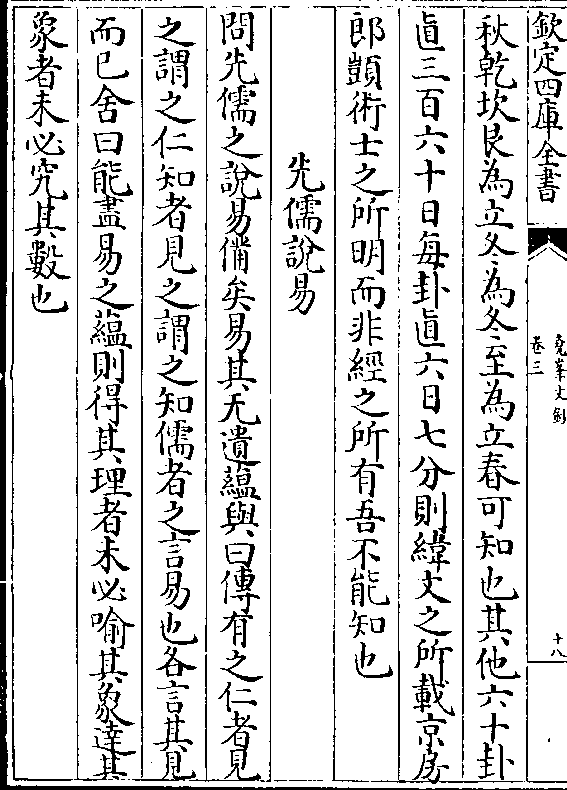 欽定四庫全書
堯峯文鈔
卷三
十八
秋乾坎艮為立冬為冬至為立春可知也其他六十卦
直三百六十日每卦直六日七分則緯文之所載京房
郎顗術士之所明而非經之所有吾不能知也
先儒說易
問先儒之說易備矣易其无遺蘊與曰傳有之仁者見
之謂之仁知者見之謂之知儒者之言易也各言其見
而已舍曰能盡易之蘊則得其理者未必喻其象達其
象者未必究其數也